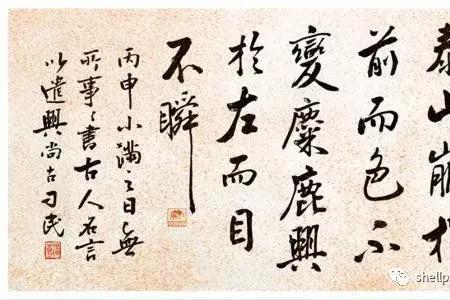 泰山崩於
前而色不
變麋鹿興
於左而目
不瞬
丙申小滿之日無
所事〻書古人名言
以遣興尚古刁民
shellp